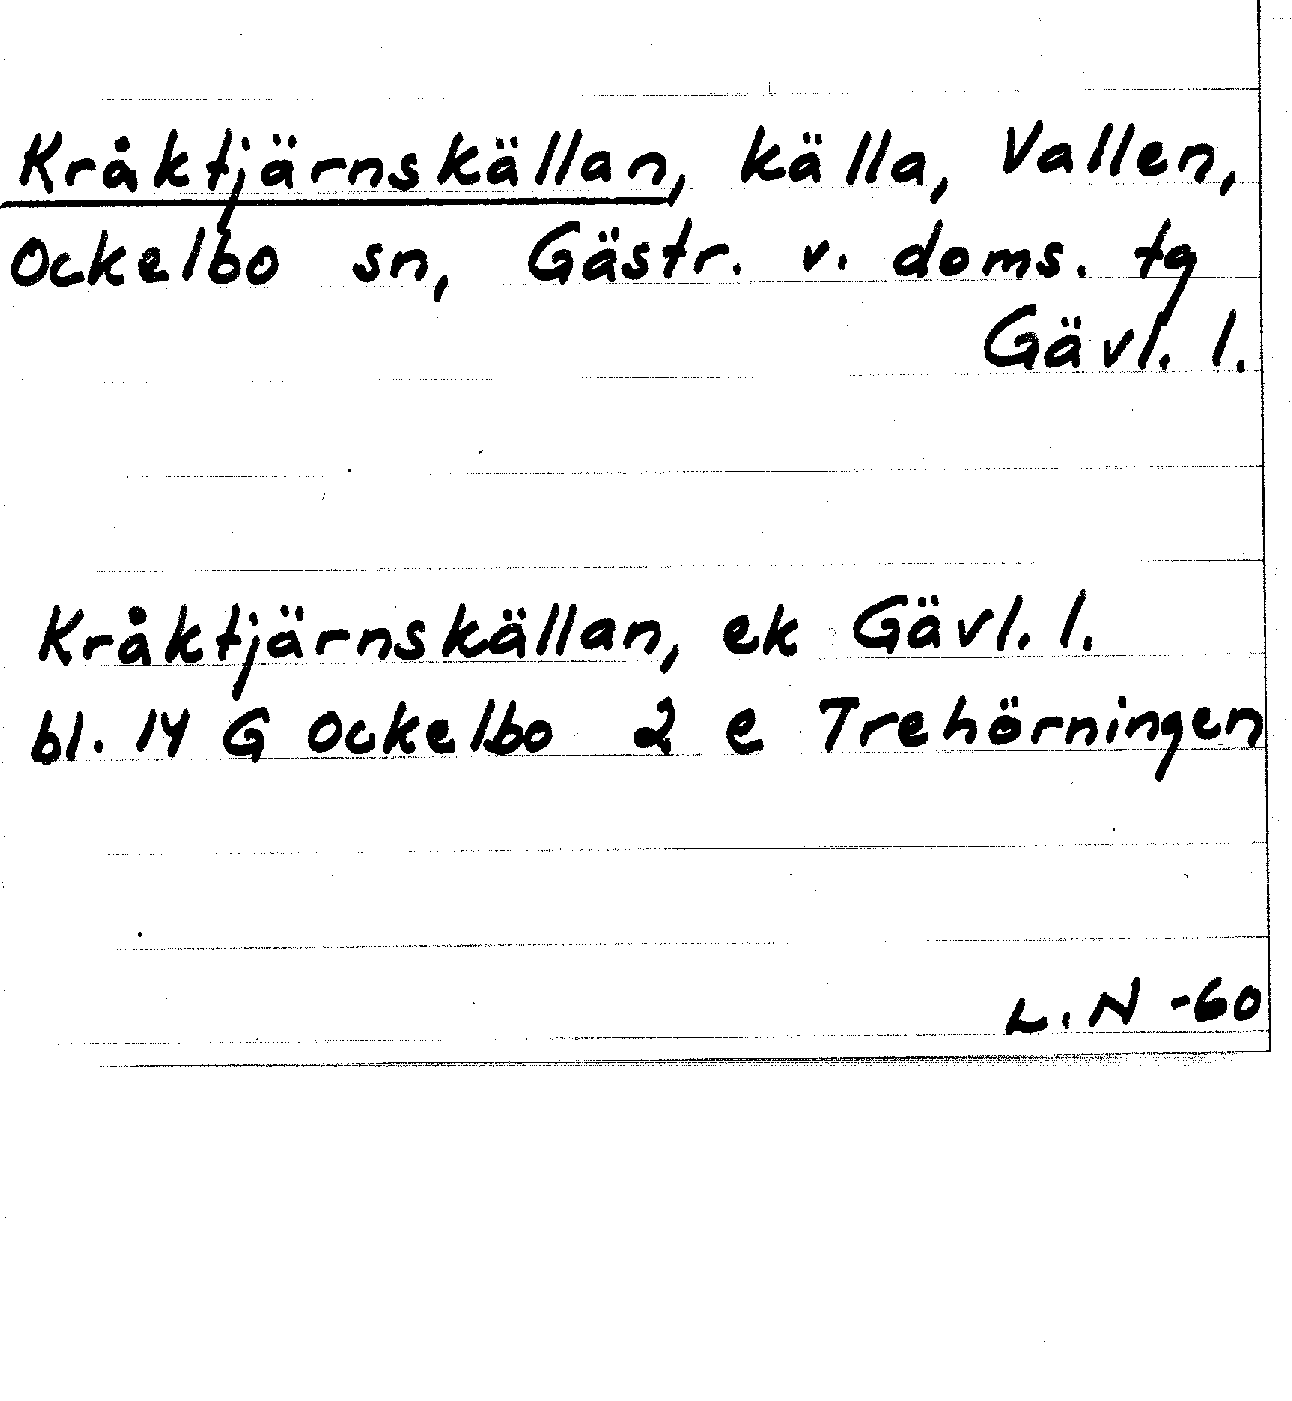 Kråktjärnskällan, källa, Vallen,
Ockelbo sn, Gästr. v. doms. tg
Gävl. l.
Kråktjärnskällan, ek Gävl. l.
bl. 14 G Ockelbo 2 e Trehörningen
L. N -60